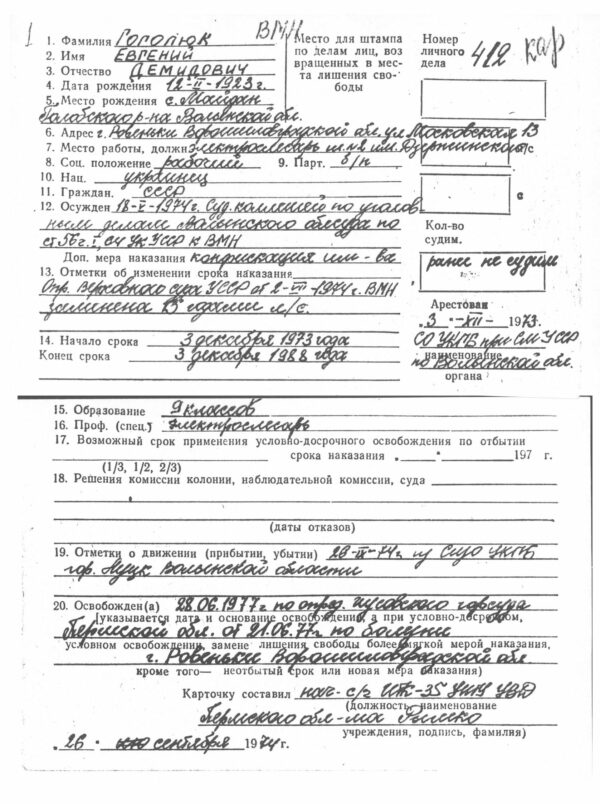 1
ВМН
1. Фамилия Гоголюк
2. Имя Евгений
3. Отчество Демидович
4. Дата рождения 12-II-1923 г.
5. Место рождения с. Майдан
Голобского р-на Волынской обл.
6. Адрес г. Ровеньки Ворошиловградской обл. ул Московская 13
7. Место работы, должн электрослесарь ш. у-я им. Дзержинского
8. Соц. положение рабочий 9. Парт. б/п
10. Нац. украинец
11. Граждан. СССР
12. Осужден 18-V-1974 г. Суд. коллегией по уголов
ным делам Волынского облсуда по
ст. 56 ч. I, УК УССР к ВМН
Доп. мера наказания конфискация им-ва
13. Отметки об изменении срока наказания
Опр. Верховного суда УССР от 2-VIII-1974 г. ВМН
заменена 15 годами л/с.
14. Начало срока 3 декабря 1973 года
Конец срока 3 декабря 1988 года
Место для штампа
по делам лиц, воз
вращенных в мес-
та лишения сво-
боды
Номер
личного
дела 412 кар
с
с
Кол-во
судим.
ранее не судим
Арестован
3 -XII- 1973.
СО УКГБ при СМ УССР
наименование
по Волынской обл.
органа
15. Образование 9 классов
16. Проф. (спец.) электрослесарь
17. Возможный срок применения условно-досрочного освобождения по отбытии
срока наказания „ " 197 г.
(1/3, 1/2, 2/3)
18. Решения комиссии колонии, наблюдательной комиссии, суда
(даты отказов)
19. Отметки о движении (прибытии, убытии) 26-IX-74г. из Сизо УКГБ
гор. Луцк Волынской области
20. Освобожден(а) 28.06.1977 г по опред. Чусовского горсуда
(указывается дата и основание освобождения, а при условно-досрочном,
Пермской обл. от 21.06.77 г. по болезни
условном освобождении, замене лишения свободы более мягкой мерой наказания,
г. Ровеньки Ворошиловградской обл.
кроме того— неотбытый срок или новая мера наказания)
Карточку составил нач- с/ч ИТК-35 УИТУ УВД
(должность, наименование
Пермского обл-ма
учреждения, подпись, фамилия)
„ 26 " сентября 1974 г.